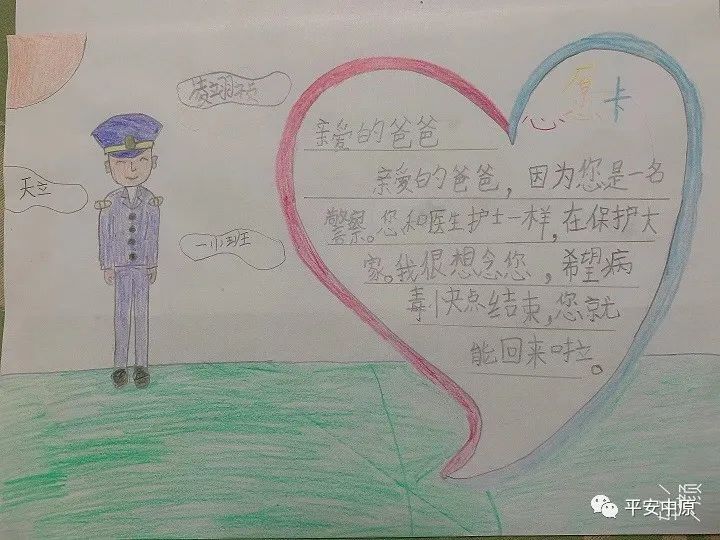 心愿卡
亲爱的爸爸
亲爱的爸爸，因为您是一名
警察。您和医生护士一样，在保护大
家。我很想念您，希望病
毒快点结束，您就
能回来啦。
天立
一小班
平安中原